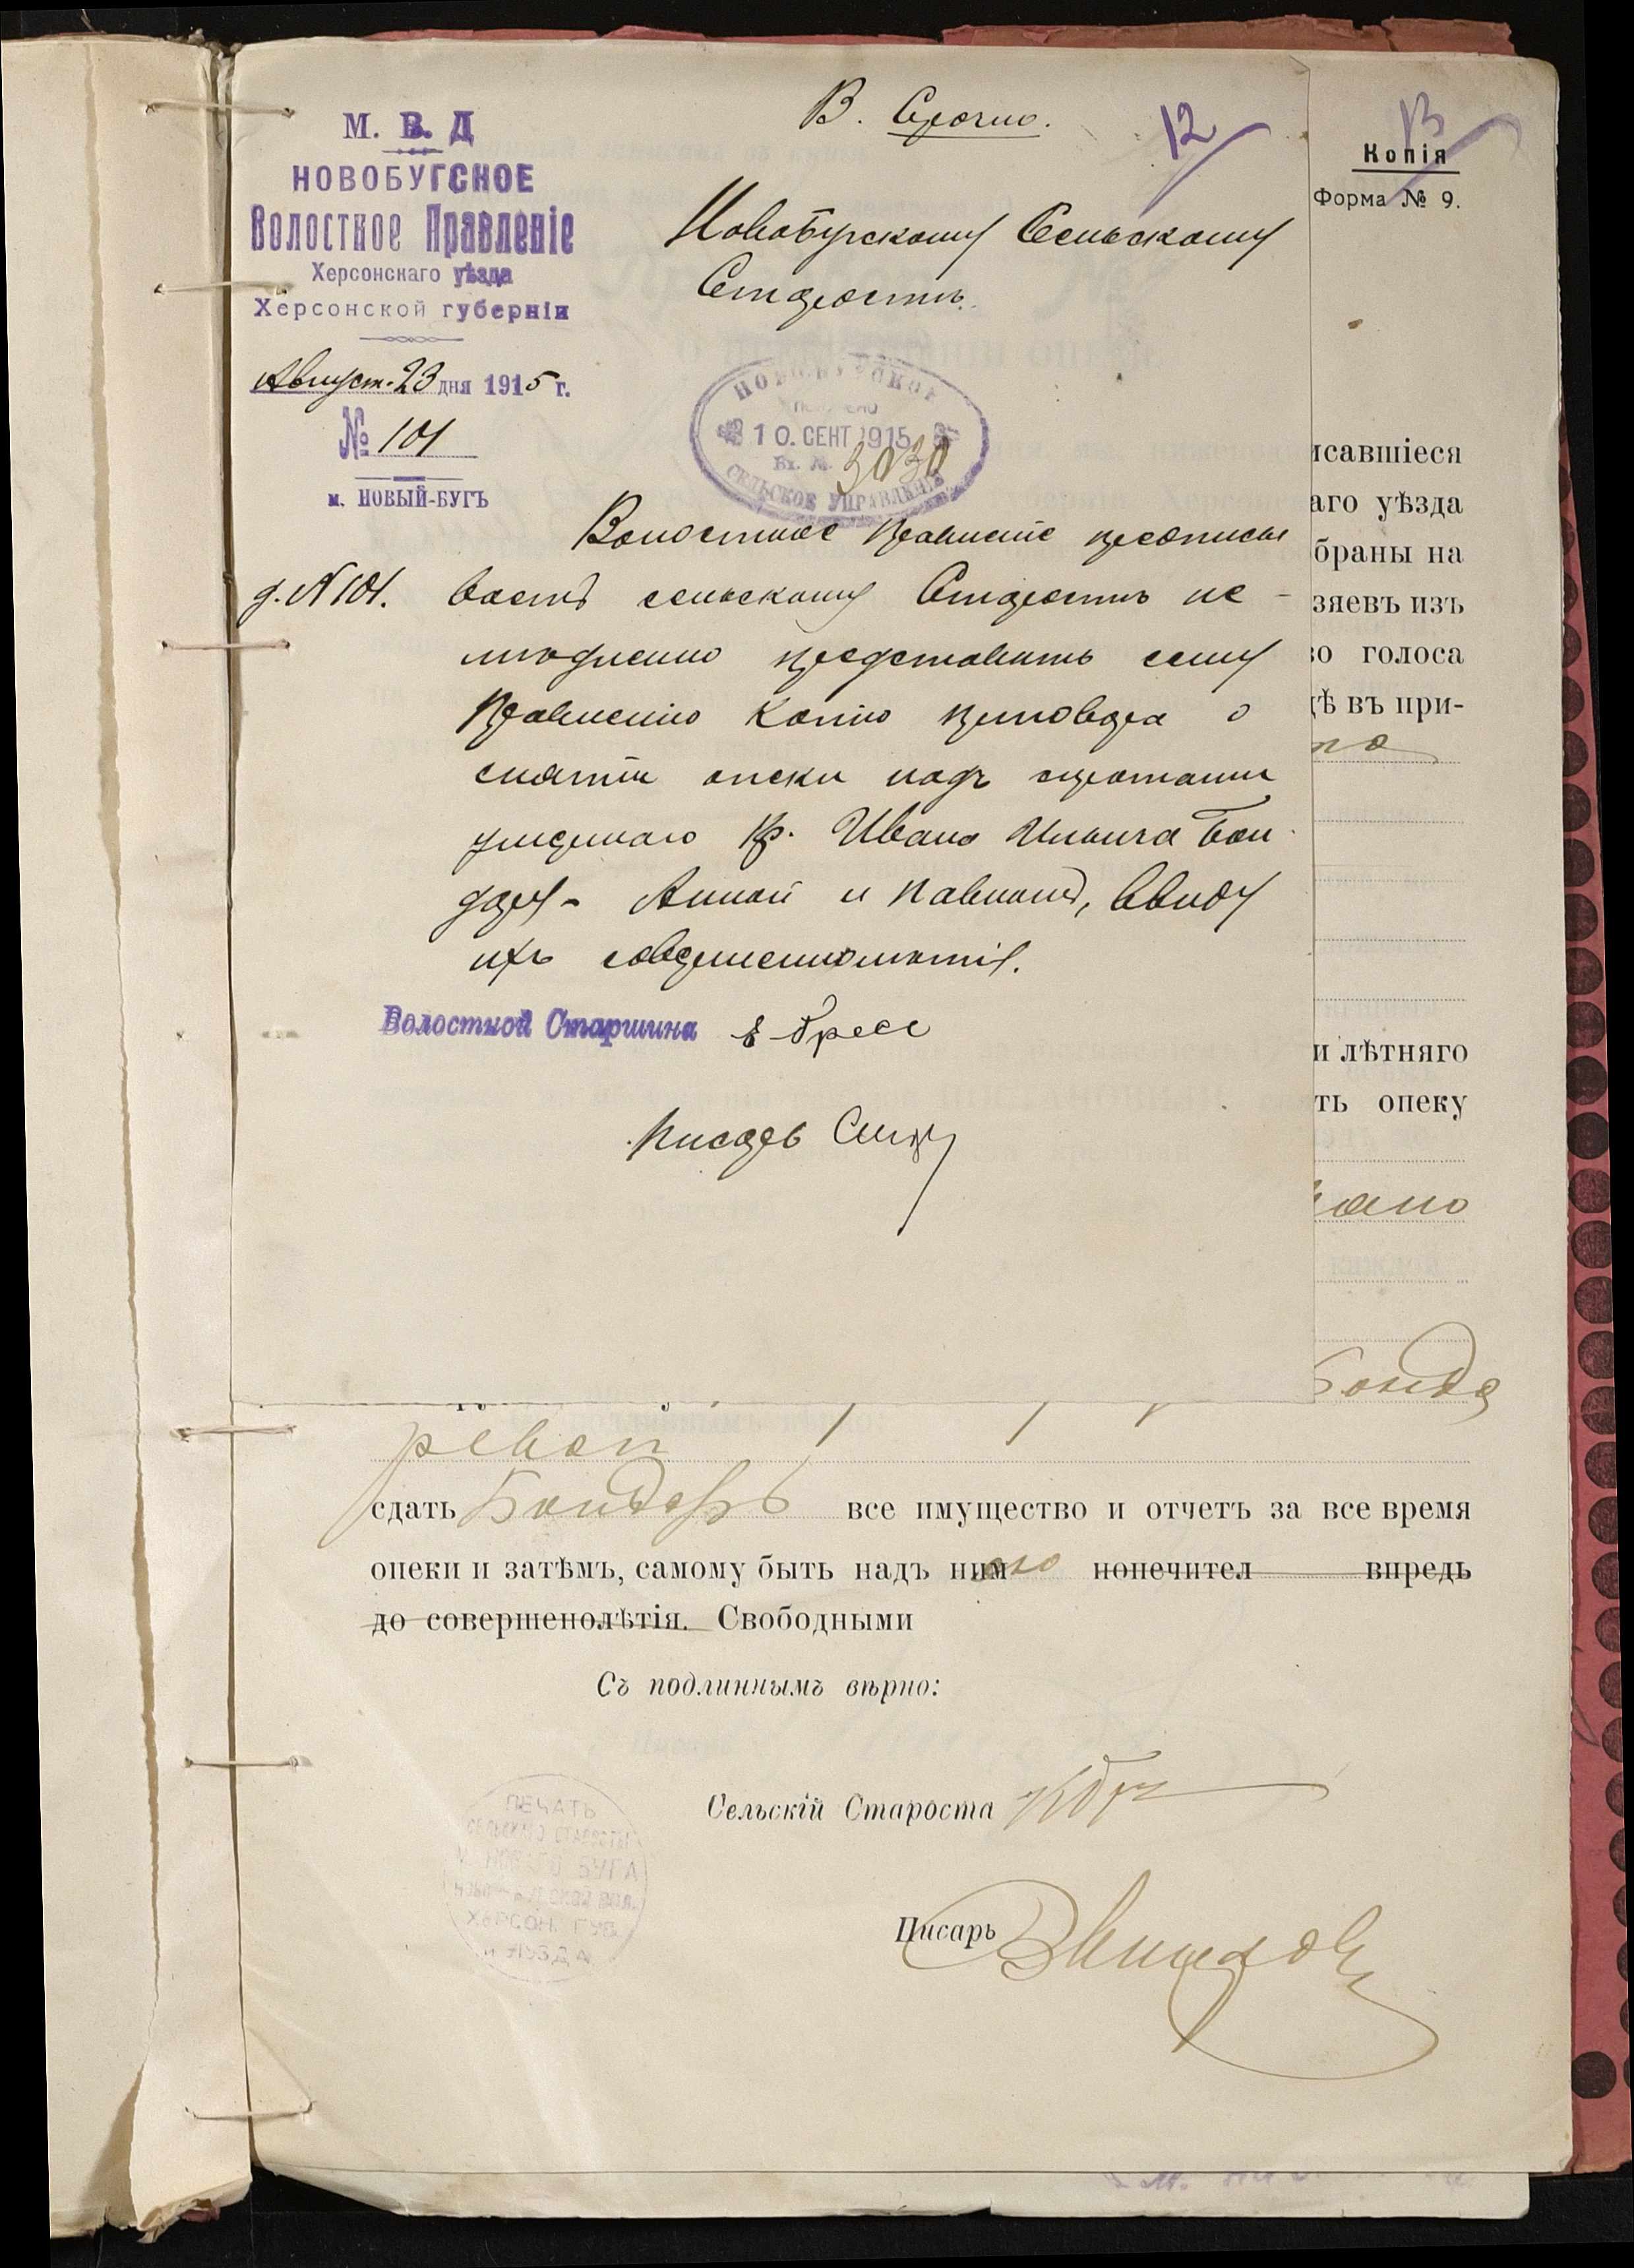 М. В. Д
НОВОБУГСКОЕ
Волостное Правленіе
Херсонскаго уѣзда
Херсонской губерніи
Август. 23 дня 1915 г.
№ 101
м. НОВЫЙ-БУГЪ
В. Срочно.
12
Новобугскому Сельскому
Старостѣ.
НОВОБУГСКОЕ
ПОЛУЧЕНО
10. СЕНТ 1915
Вх. №. 3030
СЕЛЬСКОЕ УПРАВЛЕНІЕ
д. N 101.
Волостное Правленіе предписы
ваетъ сельскому Старостѣ не-
медленно представить сему
Правленію копію приговора о
снятіи опеки надъ сиротами
умершаго кр. Ивана Ильича Бон-
даря - Анной и Павломъ, ввиду
ихъ совершеннолѣтія.
Волостной Старшина
Писарь
13
Копія
Форма № 9.
исавшіеся
аго уѣзда
браны на
зяевъ изъ
во голоса
дѣ въ при-
то
и лѣтняго
ть опеку
Бонда
ревой
сдать Бондарь все имущество и отчетъ за все время
опеки и затѣмъ, самому быть надъ ним попечител впредь
до совершенолѣтія. Свободными
Съ подлиннымъ вѣрно:
Сельскій Староста
Писарь
ПЕЧАТЬ
СЕЛЬСКАГО СТАРОСТЫ
М. НОВАГО БУГА
ХЕРСОН. ГУБ.
И УѢЗДА